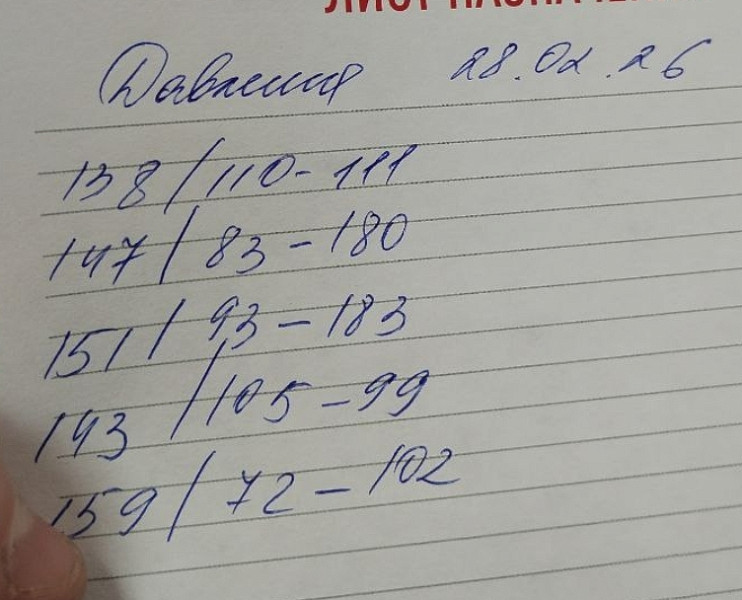 ЛИСТ НАЗНАЧЕН
Давления 28.02.26
138/110-111
147/83-180
151/93-183
143/105-99
159/72-102